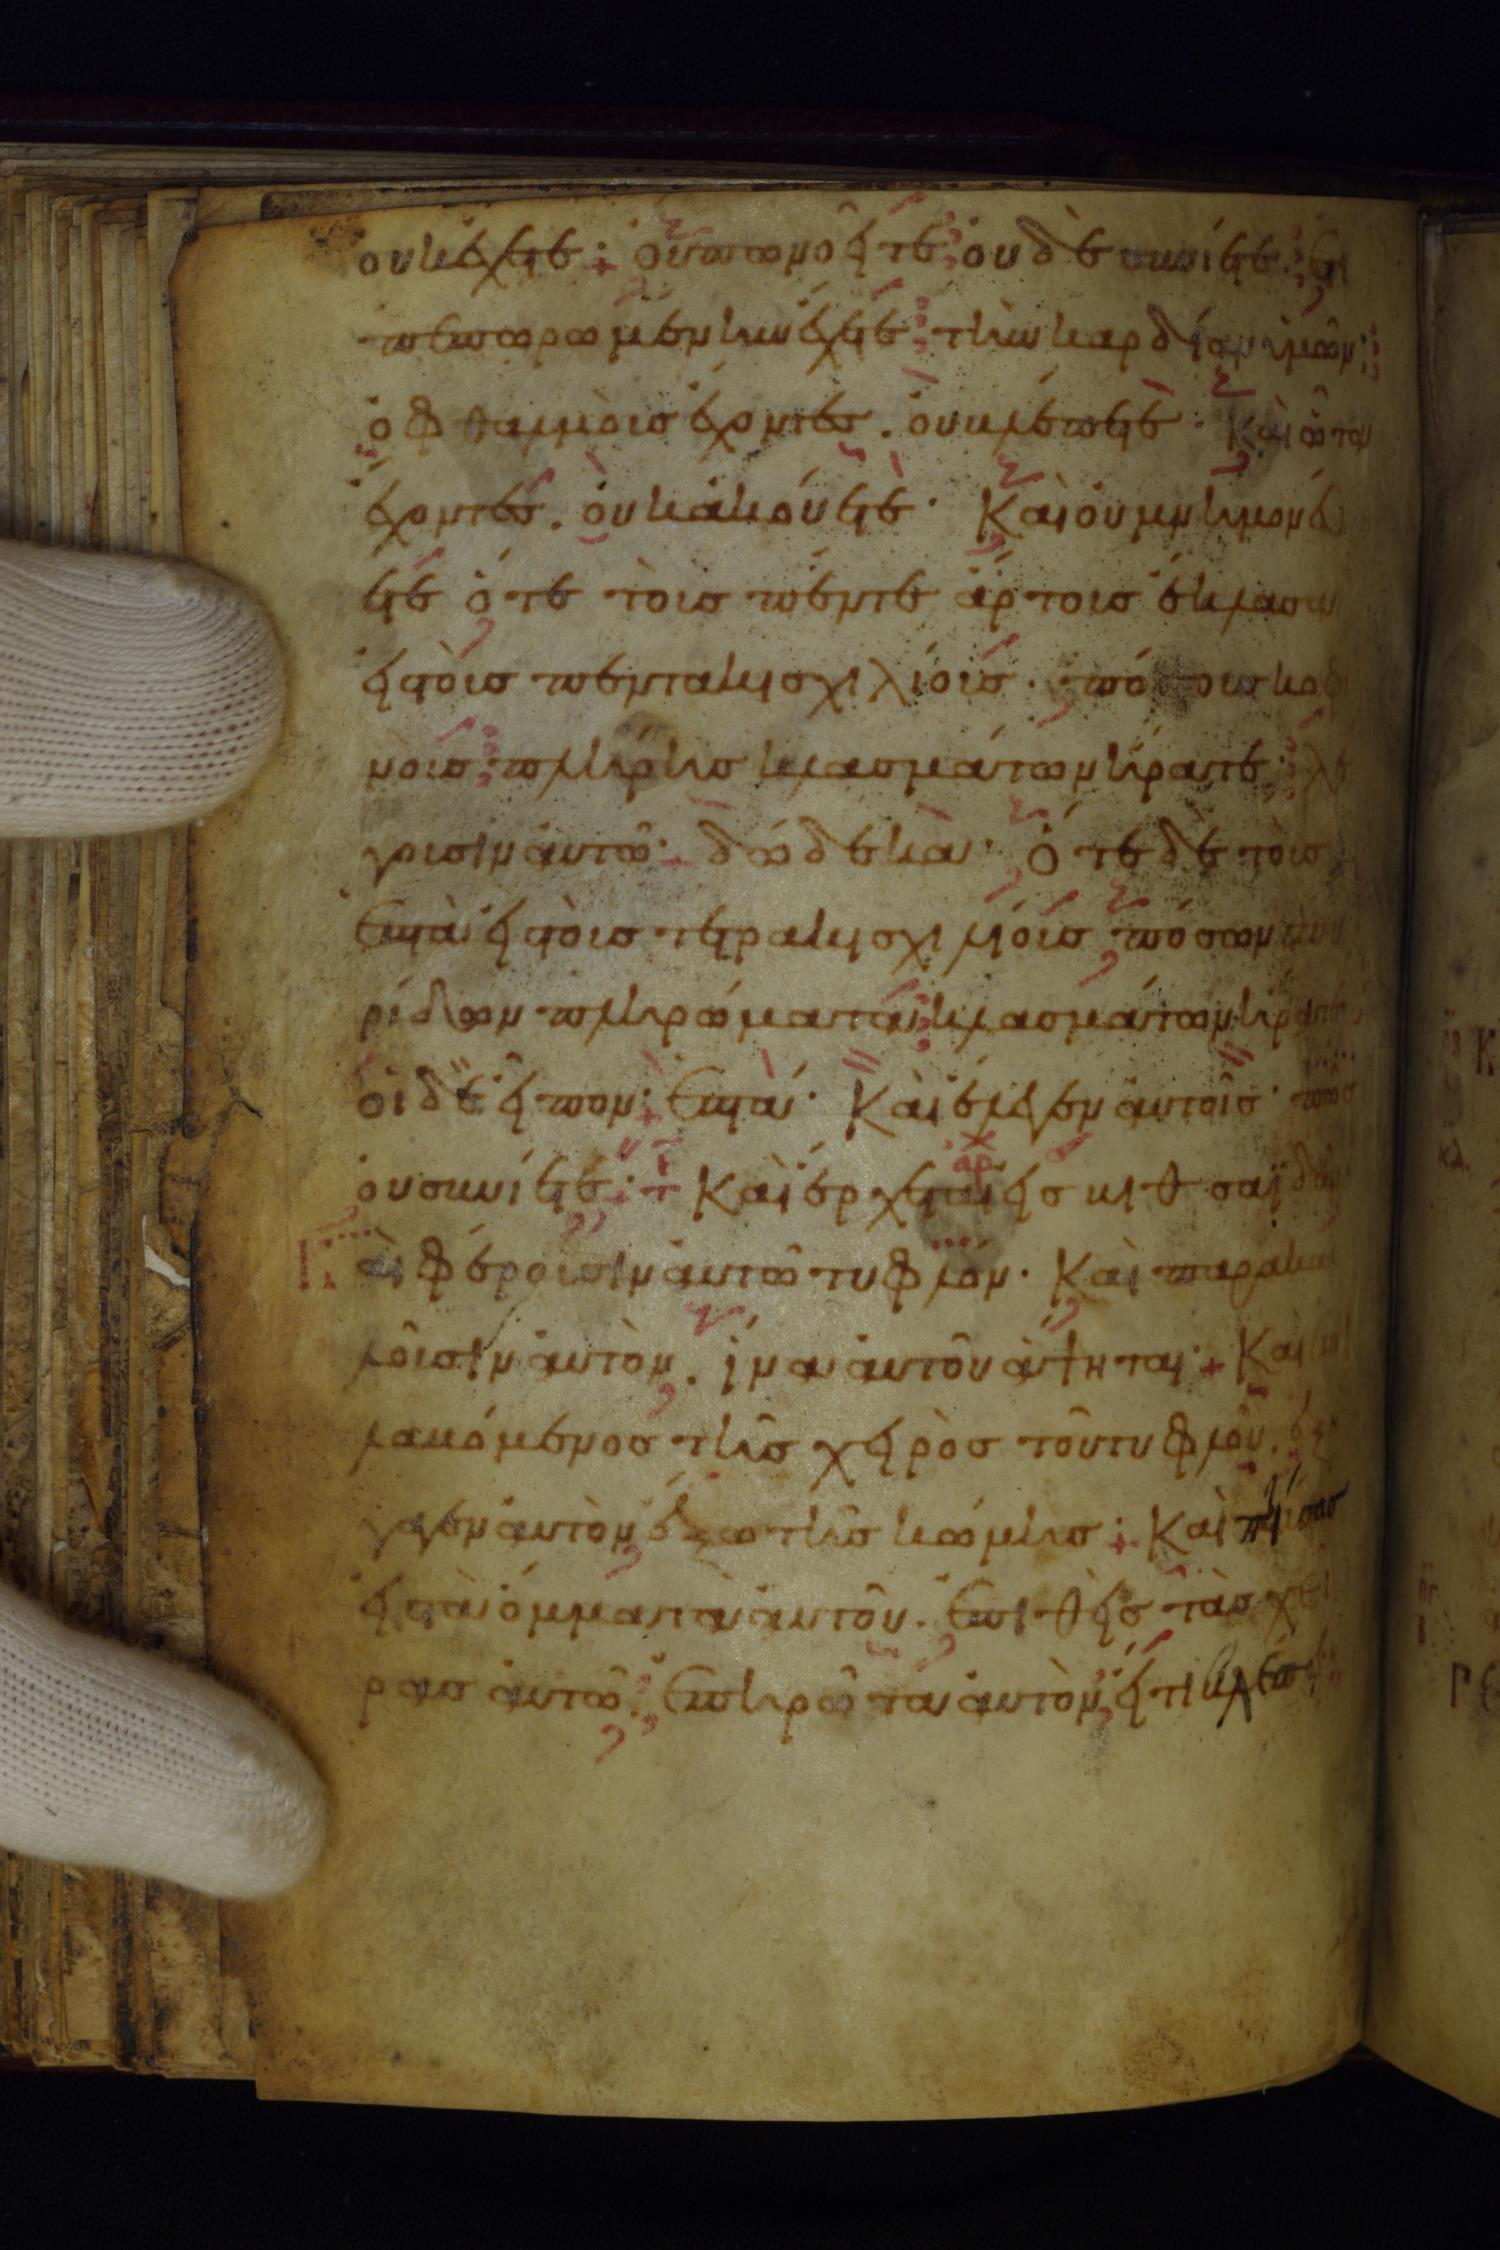 ουκ έχετε: όυπω μοείτε ουδὲ συνίετε. ετι
πεπωρωμένην έχετε την καρδίαν ϊμῶν;
ὀφθαλμὸις έχοντες. ὀυ βλέπετὲ· Κὰι ὦτα
έχοντες. ὀυκ ἀκούετε· Κὰι ὀυ μνημονέ
ετε ὅτε τὸις πέντε ἄρτοις έκλασα
εἰ τὸις πεντακισχιλίοις. πόσους κοφι
νοις πλήρις κλασμάτων ήρατε· λέ
γουσιν ἀυτῶ· δώδεκα· Ὅτε δὲ τὸις
ἑπτὰ εἰ τὸις τετρακισχιλίοις πόσων σπυ
ρίδων πληρώματα κλασμάτων ήρατε;
ὁι δὲ εἶπον· ἑπτά· Κὰι έλεγεν ἀυτοῖς· πῶς
ὀυ συνίετε· Κὰι έρχεται εἰς βιθσαϊδὰν·
Κὰι φέρουσιν ἀυτῶ τυφλόν. Κὰι παρακα
λοῦσιν ἀυτὸν. ἵνα ἀυτοῦ άψηται· Κὰι ἐπι
λαβόμενος τῆς χειρὸς τοῦ τυφλοῦ. ἐξή
γαγεν ἀυτὸν έξω τῆς κώμης: Κὰι πτύσας
εἰ τὰ όμματα ἀυτοῦ. ἐπιθεὶς τὰς χει
ρας ἀυτῶ. ἐπηρώτα ἀυτὸν εί τι βλέπει